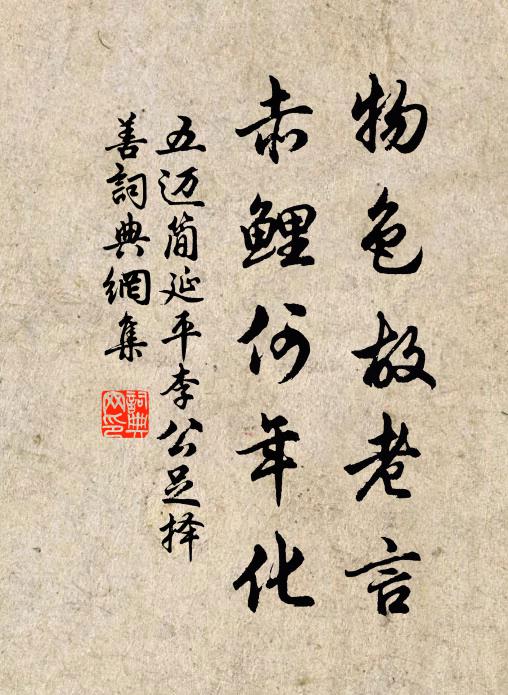 物色故老言
赤鲤何年化
五迈简延平李公足择
善詞典網集
詞典
网印